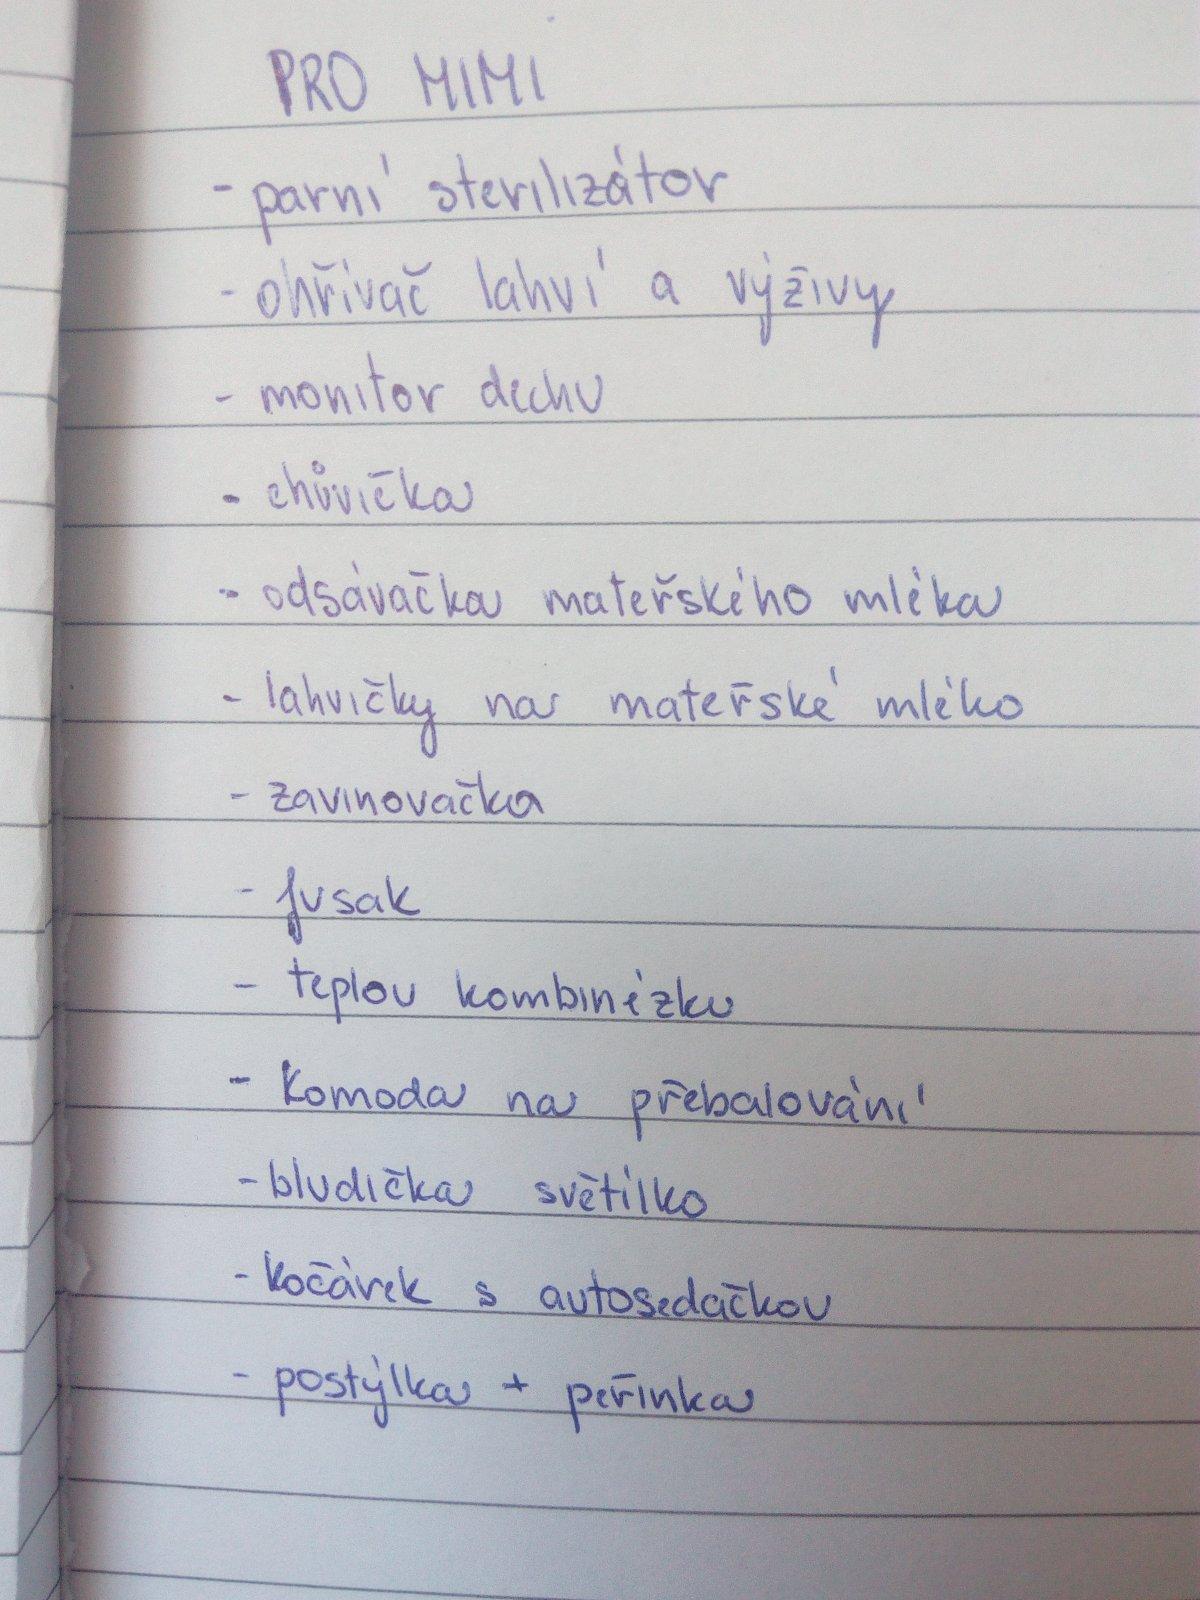 PRO MIMI
- parní sterilizátor
- ohřívač lahví a výživy
- monitor dechu
- chůvička
- odsávačka mateřského mléka
- lahvičky na mateřské mléko
- zavinovačka
- fusak
- teplou kombinézku
- Komoda na přebalování
- bludička světílko
- kočárek s autosedačkou
- postýlka + peřinka